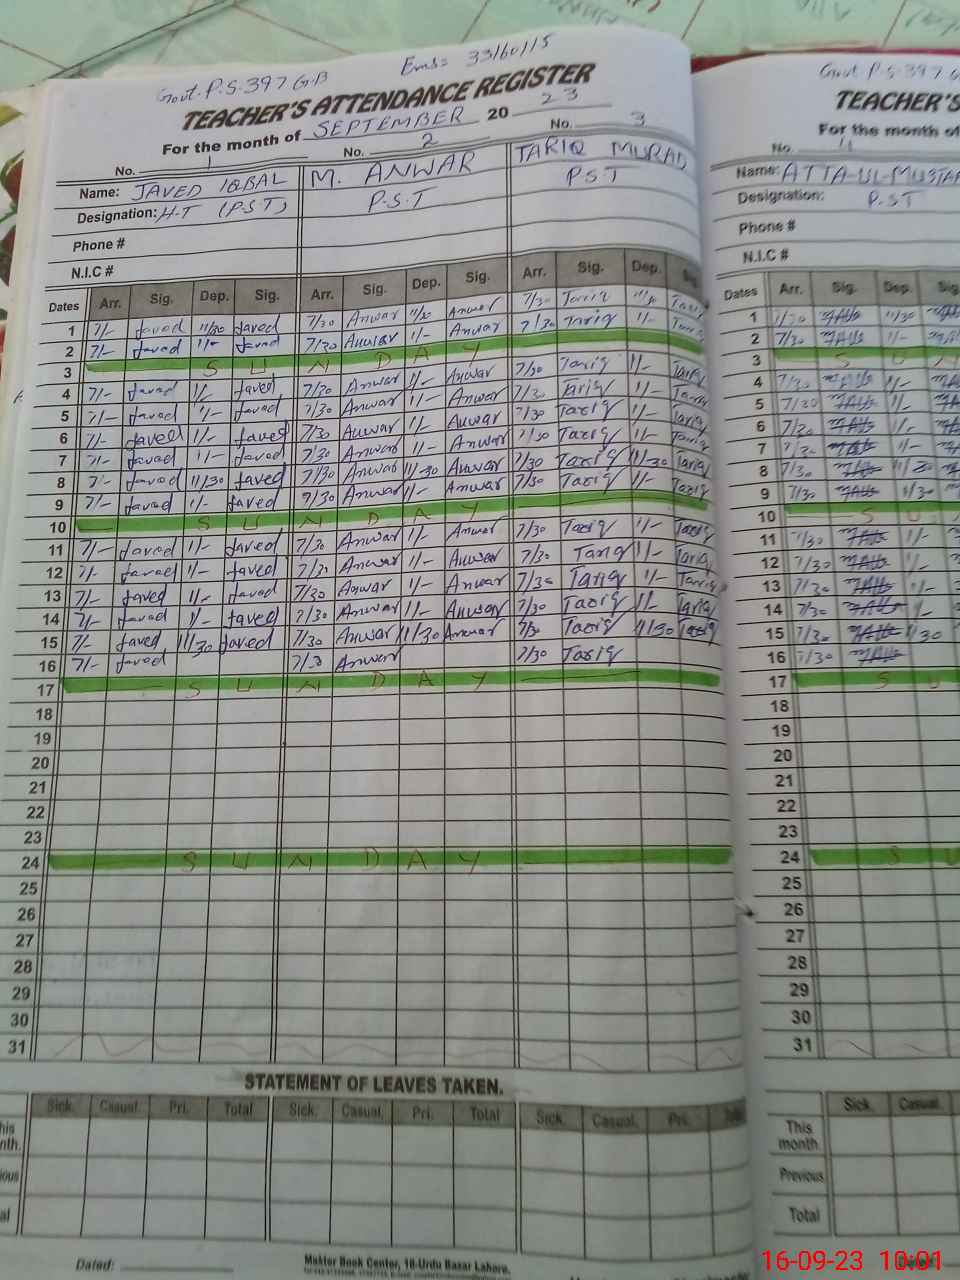 Govt. P.S. 397 G.B Ems= 33160115
TEACHER'S ATTENDANCE REGISTER
For the month of SEPTEMBER 2023
No. 1 No. 2 No. 3
Name: JAVED IQBAL M. ANWAR TARIQ MURAD
Designation: H-T (P.S.T) P.S.T P.S.T
Phone #
N.I.C #
Dates Arr. Sig. Dep. Sig. Arr. Sig. Dep. Sig. Arr. Sig. Dep. Sig.
1 7/- Javed 11/30 Javed 7/30 Anwar 11/30 Anwar 7/30 Tariq 11/30 Tariq
2 7/- Javed 11/- Javed 7/30 Anwar 11/- Anwar 7/30 Tariq 11/- Tariq
3 SUNDAY
4 7/- Javed 11/- Javed 7/30 Anwar 11/- Anwar 7/30 Tariq 11/- Tariq
5 7/- Javed 11/- Javed 7/30 Anwar 11/- Anwar 7/30 Tariq 11/- Tariq
6 7/- Javed 11/- Javed 7/30 Anwar 11/- Anwar 7/30 Tariq 11/- Tariq
7 7/- Javed 11/- Javed 7/30 Anwar 11/- Anwar 7/30 Tariq 11/- Tariq
8 7/- Javed 11/30 Javed 7/30 Anwar 11/30 Anwar 7/30 Tariq 11/30 Tariq
9 7/- Javed 11/- Javed 7/30 Anwar 11/- Anwar 7/30 Tariq 11/- Tariq
10 SUNDAY
11 7/- Javed 11/- Javed 7/30 Anwar 11/- Anwar 7/30 Tariq 11/- Tariq
12 7/- Javed 11/- Javed 7/30 Anwar 11/- Anwar 7/30 Tariq 11/- Tariq
13 7/- Javed 11/- Javed 7/30 Anwar 11/- Anwar 7/30 Tariq 11/- Tariq
14 7/- Javed 11/- Javed 7/30 Anwar 11/- Anwar 7/30 Tariq 11/- Tariq
15 7/- Javed 11/30 Javed 7/30 Anwar 11/30 Anwar 7/30 Tariq 11/30 Tariq
16 7/- Javed 7/30 Anwar 7/30 Tariq
17 SUNDAY
18
19
20
21
22
23
24 SUNDAY
25
26
27
28
29
30
31
STATEMENT OF LEAVES TAKEN.
Sick. Casual. Pri. Total Sick. Casual. Pri. Total Sick. Casual. Pri. Total
Dated:
Makter Book Center, 18-Urdu Bazar Lahore.
Govt P.S. 397 G
TEACHER'S
For the month of
No. 4
Name: ATTA-UL-MUSTAF
Designation: P.ST
Phone #
N.I.C #
Dates Arr. Sig. Dep. Sig.
1 7/30 11/30
2 7/30 11/-
3 SUN
4 7/30 11/-
5 7/30 11/-
6 7/30 11/-
7 7/30 11/-
8 7/30 11/30
9 7/30 11/30
10 SU
11 7/30 11/-
12 7/30 11/-
13 7/30 11/-
14 7/30 11/-
15 7/30 11/30
16 7/30
17 SU
18
19
20
21
22
23
24 SU
25
26
27
28
29
30
31
Sick. Casual.
This month
Previous
Total
16-09-23 10:01